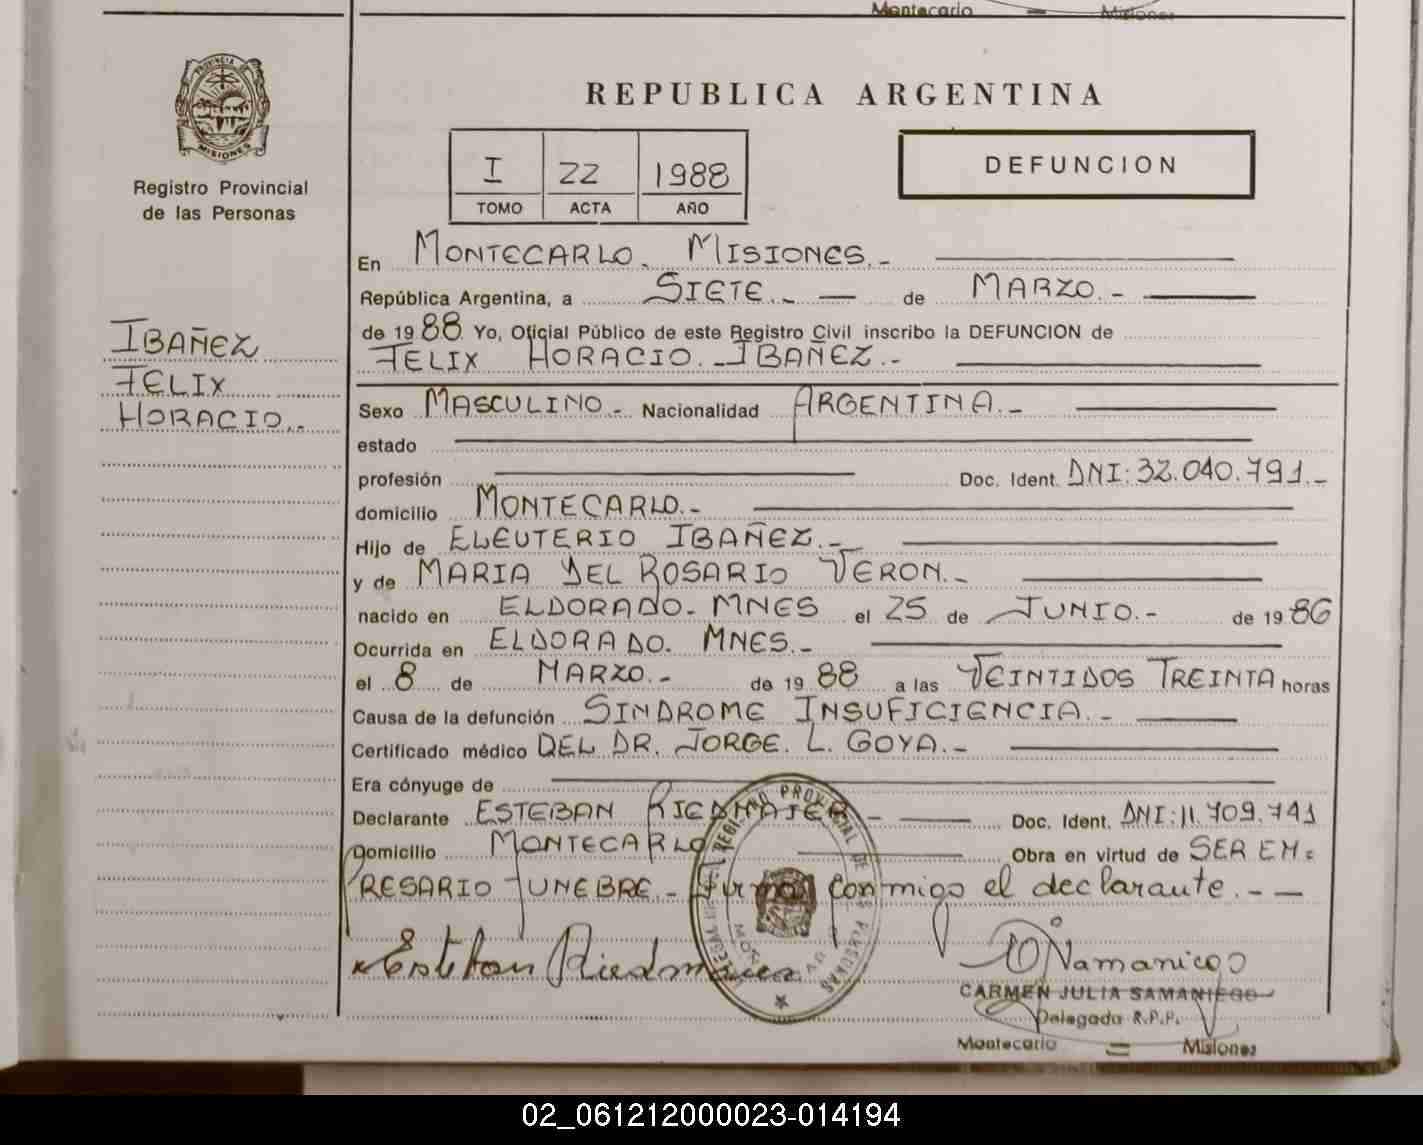 Montecarlo — Misiones
PROVINCIA DE
MISIONES
Registro Provincial
de las Personas
IBAÑEZ
FELIX
HORACIO.-
REPUBLICA ARGENTINA
I 22 1988
TOMO ACTA AÑO
DEFUNCION
En MONTECARLO. MISIONES.-
República Argentina, a SIETE.- — de MARZO.-
de 1988. Yo, Oficial Público de este Registro Civil inscribo la DEFUNCION de
FELIX HORACIO.- IBAÑEZ.-
Sexo MASCULINO.- Nacionalidad ARGENTINA.-
estado
profesión Doc. Ident. DNI: 32.040.791.-
domicilio MONTECARLO.-
Hijo de ELEUTERIO IBAÑEZ.-
y de MARIA DEL ROSARIO VERON.-
nacido en ELDORADO- MNES el 25 de JUNIO.- de 1986
Ocurrida en ELDORADO. MNES.-
el 8 de MARZO.- de 1988 a las VEINTIDOS TREINTA horas
Causa de la defunción SINDROME INSUFICIENCIA.-
Certificado médico DEL DR. JORGE. L. GOYA.-
Era cónyuge de
Declarante ESTEBAN RIEDMAIER - Doc. Ident. DNI: 11.709.741
Domicilio MONTECARLO Obra en virtud de SER EM=
PRESARIO FUNEBRE.- Firma conmigo el declarante.- —
Esteban Riedmaier
CARMEN JULIA SAMANIEGO
Delegada R.P.P.
Montecarlo = Misiones
02_061212000023-014194